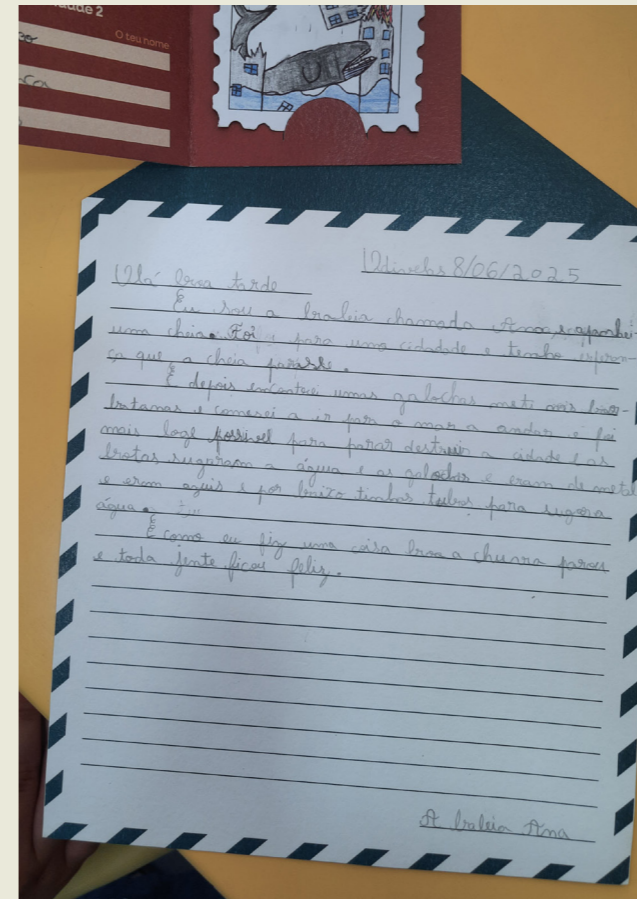 dade 2
O teu nome
Odivelas 8/06/2025
Olá boa tarde
Eu sou a baleia chamada Ana, e apanhei
uma cheia. Foi para uma cidadade e tenho esperan-
ça que a cheia parasse.
E depois encontrei umas galochas meti nas bar-
batanas e comesei a ir para o mar a andar e foi
mais loge possivel para parar destruir a cidade e as
brotas sugaram a água e as galochas e eram de metal
e eram azuis e por baixo tinhas tubos para sugora
água.
E como eu fiz uma coisa boa a chuva parou
e toda jente ficou feliz.
A baleia Ana